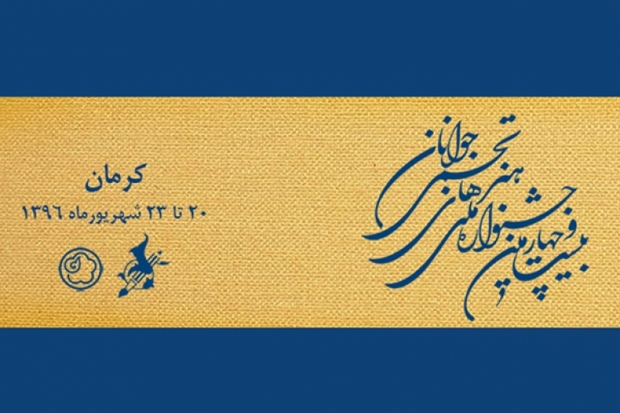 بیست و چهارمین
جشنواره ملی
هنرهای تجسمی
جوانان
کرمان
۲۰ تا ۲۳ شهریورماه ۱۳۹۶